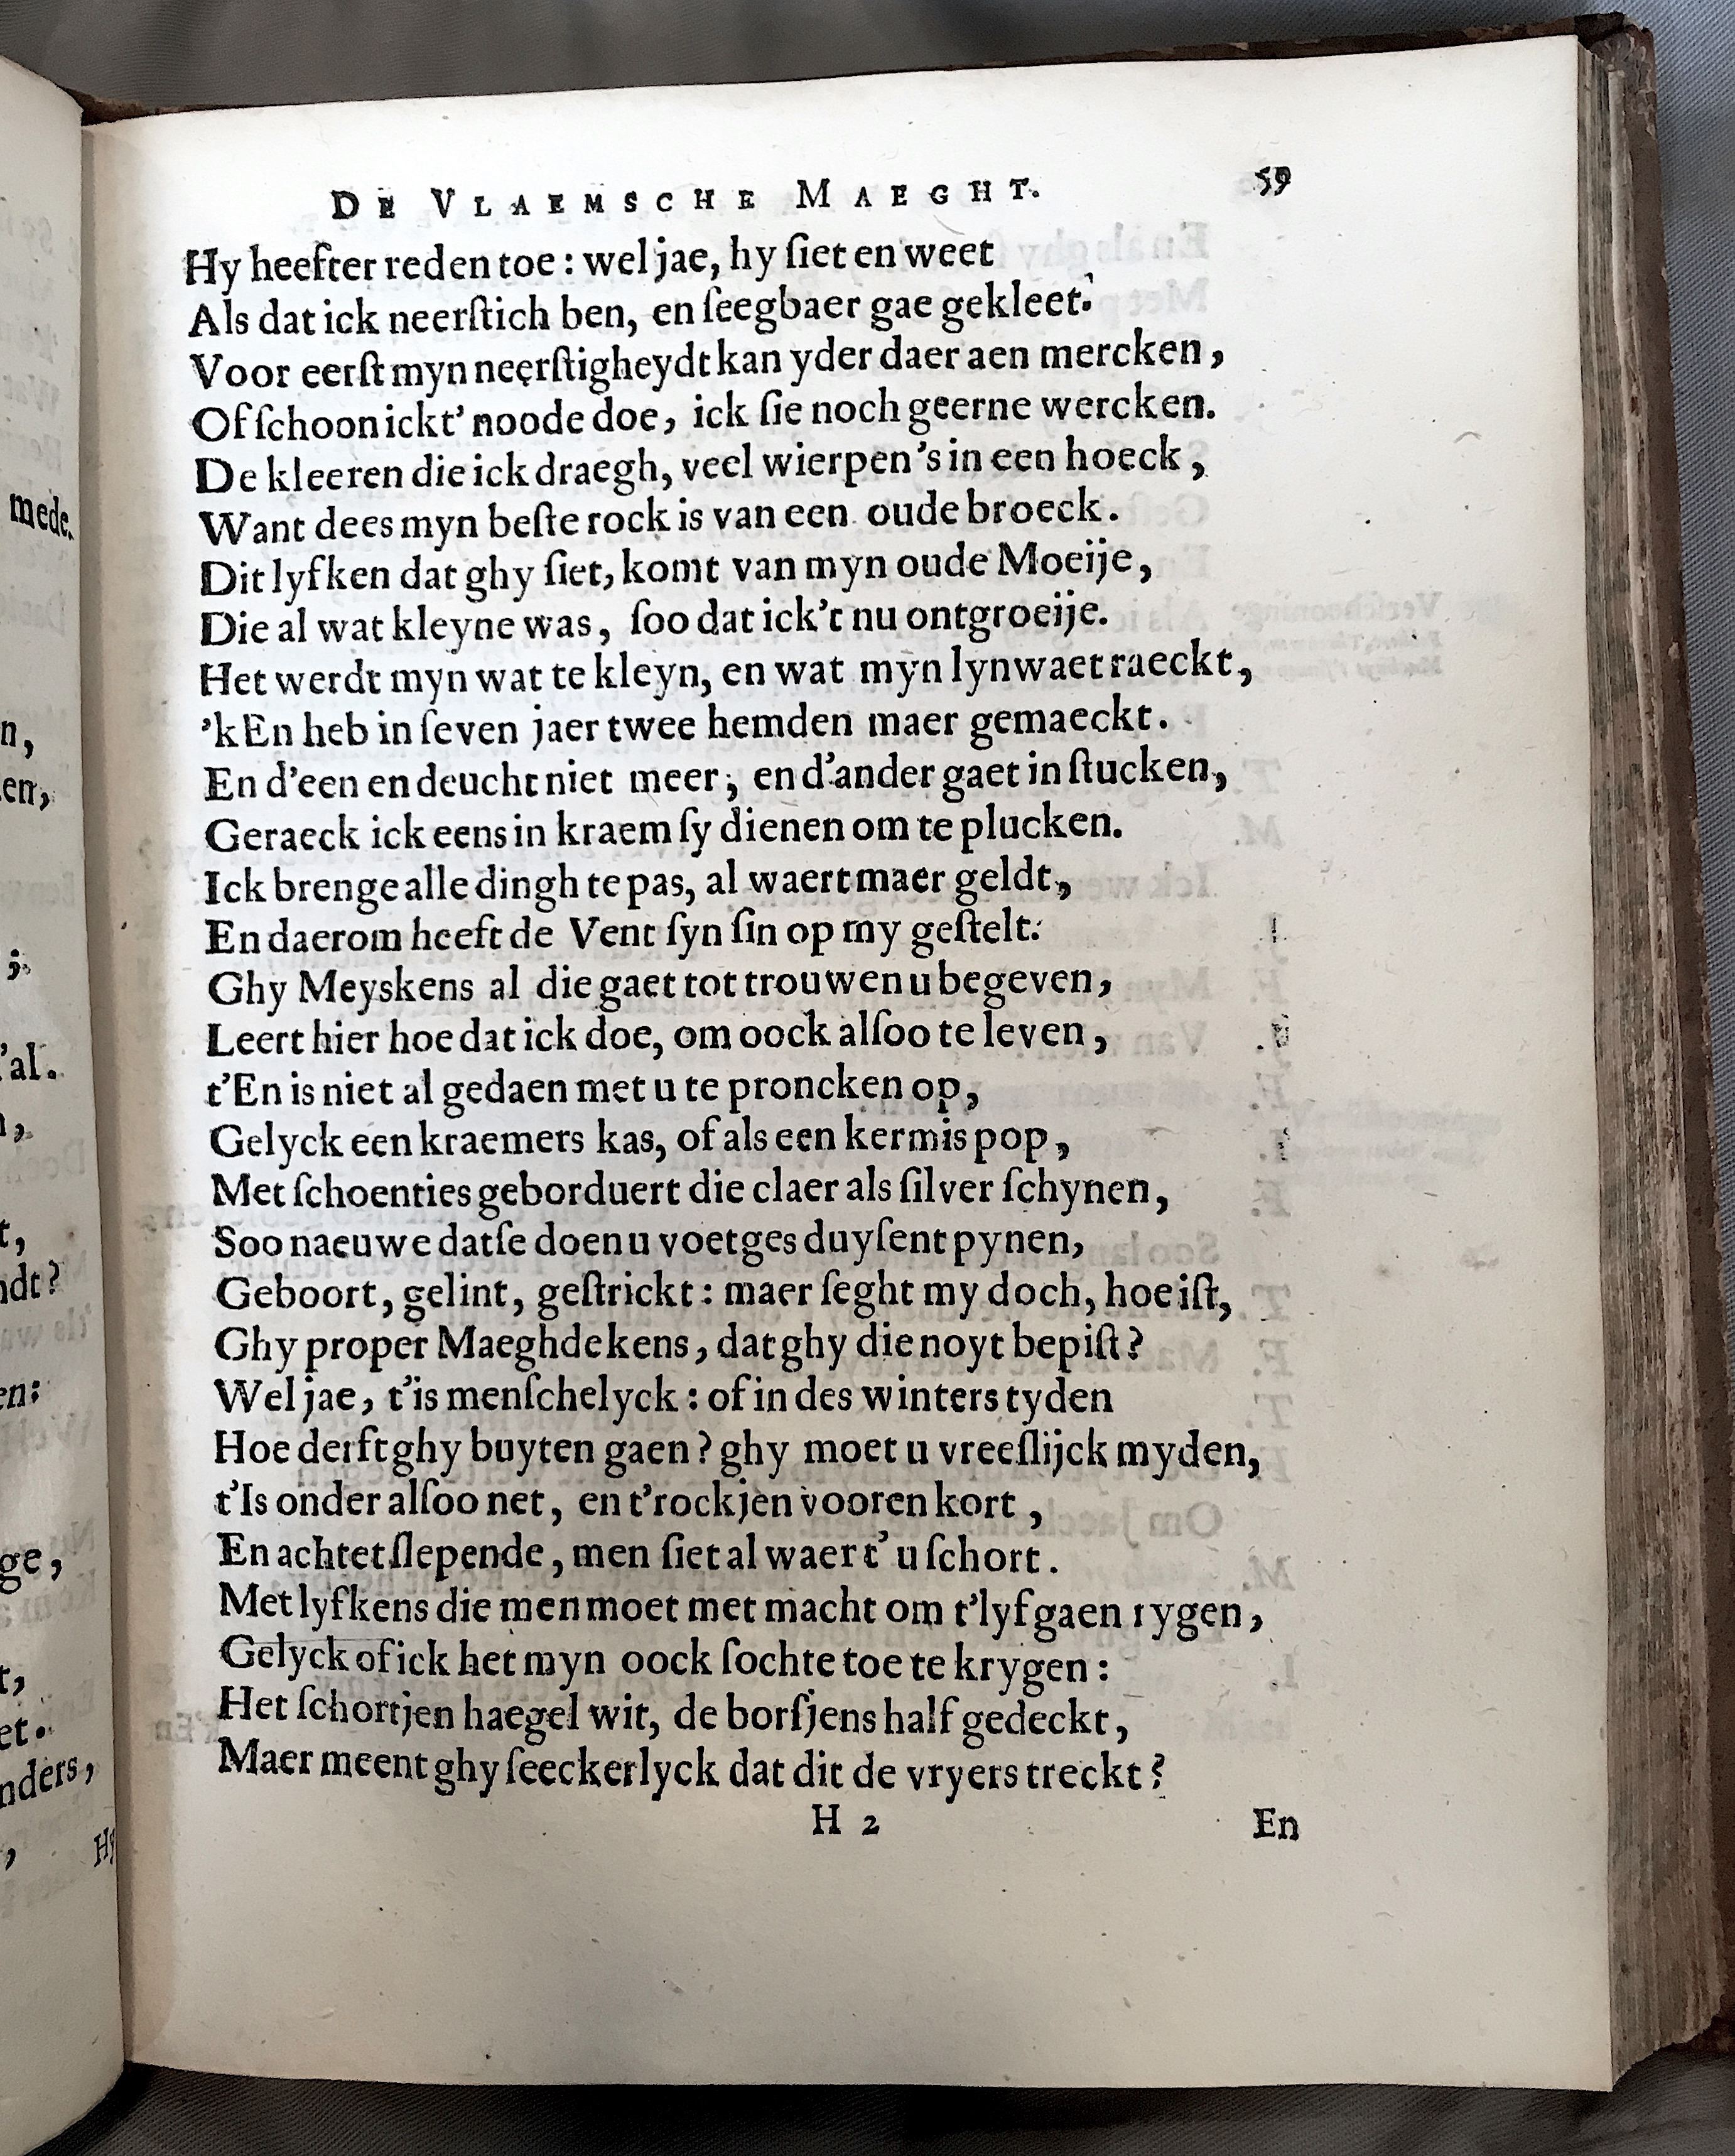 DE VLAEMSCHE MAEGHT. 59
Hy heefter reden toe: wel jae, hy ſiet en weet
Als dat ick neerſtich ben, en ſeegbaer gae gekleet.
Voor eerſt myn neerſtigheydt kan yder daer aen mercken,
Of ſchoon ickt' noode doe, ick ſie noch geerne wercken.
De kleeren die ick draegh, veel wierpen 's in een hoeck,
Want dees myn beſte rock is van een oude broeck.
Dit lyfken dat ghy ſiet, komt van myn oude Moeije,
Die al wat kleyne was, ſoo dat ick't nu ontgroeije.
Het werdt myn wat te kleyn, en wat myn lynwaet raeckt,
'k En heb in ſeven jaer twee hemden maer gemaeckt.
En d'een en deucht niet meer; en d'ander gaet in ſtucken,
Geraeck ick eens in kraem ſy dienen om te plucken.
Ick brenge alle dingh te pas, al waert maer geldt,
En daerom heeft de Vent ſyn ſin op my geſtelt.
Ghy Meyskens al die gaet tot trouwen u begeven,
Leert hier hoe dat ick doe, om oock alſoo te leven,
t'En is niet al gedaen met u te proncken op,
Gelyck een kraemers kas, of als een kermis pop,
Met ſchoenties geborduert die claer als ſilver ſchynen,
Soo naeuwe datſe doen u voetges duyſent pynen,
Geboort, gelint, geſtrickt: maer ſeght my doch, hoe iſt,
Ghy proper Maeghdekens, dat ghy die noyt bepiſt?
Wel jae, t'is menſchelyck: of in des winters tyden
Hoe derft ghy buyten gaen? ghy moet u vreeſlijck myden,
t'Is onder alſoo net, en t'rockjen vooren kort,
En achtet ſlepende, men ſiet al waer t' u ſchort.
Met lyfkens die men moet met macht om t'lyf gaen rygen,
Gelyck of ick het myn oock ſochte toe te krygen:
Het ſchortjen haegel wit, de borſjens half gedeckt,
Maer meent ghy ſeeckerlyck dat dit de vryers treckt?
H 2 En
mede.
n,
en,
;
'al.
,
t,
ndt?
en:
ge,
t,
et.
nders,
,
Hy